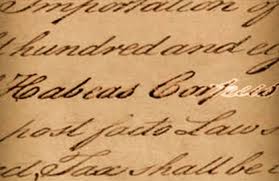 Importation of
hundred and eig
Habeas Corpus
post facto Law s
d, Tax shall be